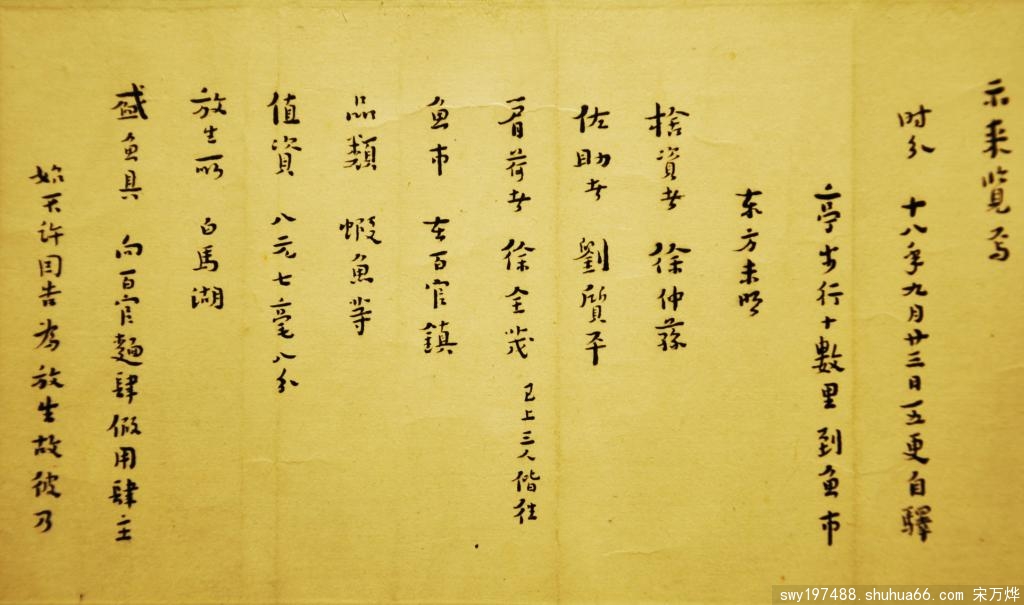 示来览焉
时分 十八年九月廿三日五更自驛
亭步行十數里到魚市
东方未明
捨資者 徐仲蓀
佐助者 劉質平
肩荷者 徐全茂 已上三人偕往
魚市 在百官鎮
品類 蝦魚等
值資 八元七毫八分
放生所 白馬湖
盛魚具 向百官麵肆假用肆主
始不许因告為放生故彼乃
swy197488.shuhua66.com 宋万烨